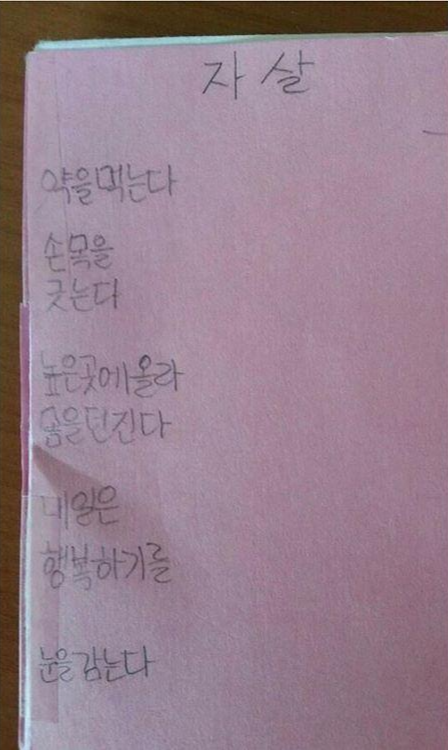 자 살
약을 먹는다
손목을
긋는다
높은곳에 올라
몸을 던진다
내일은
행복하기를
눈을 감는다